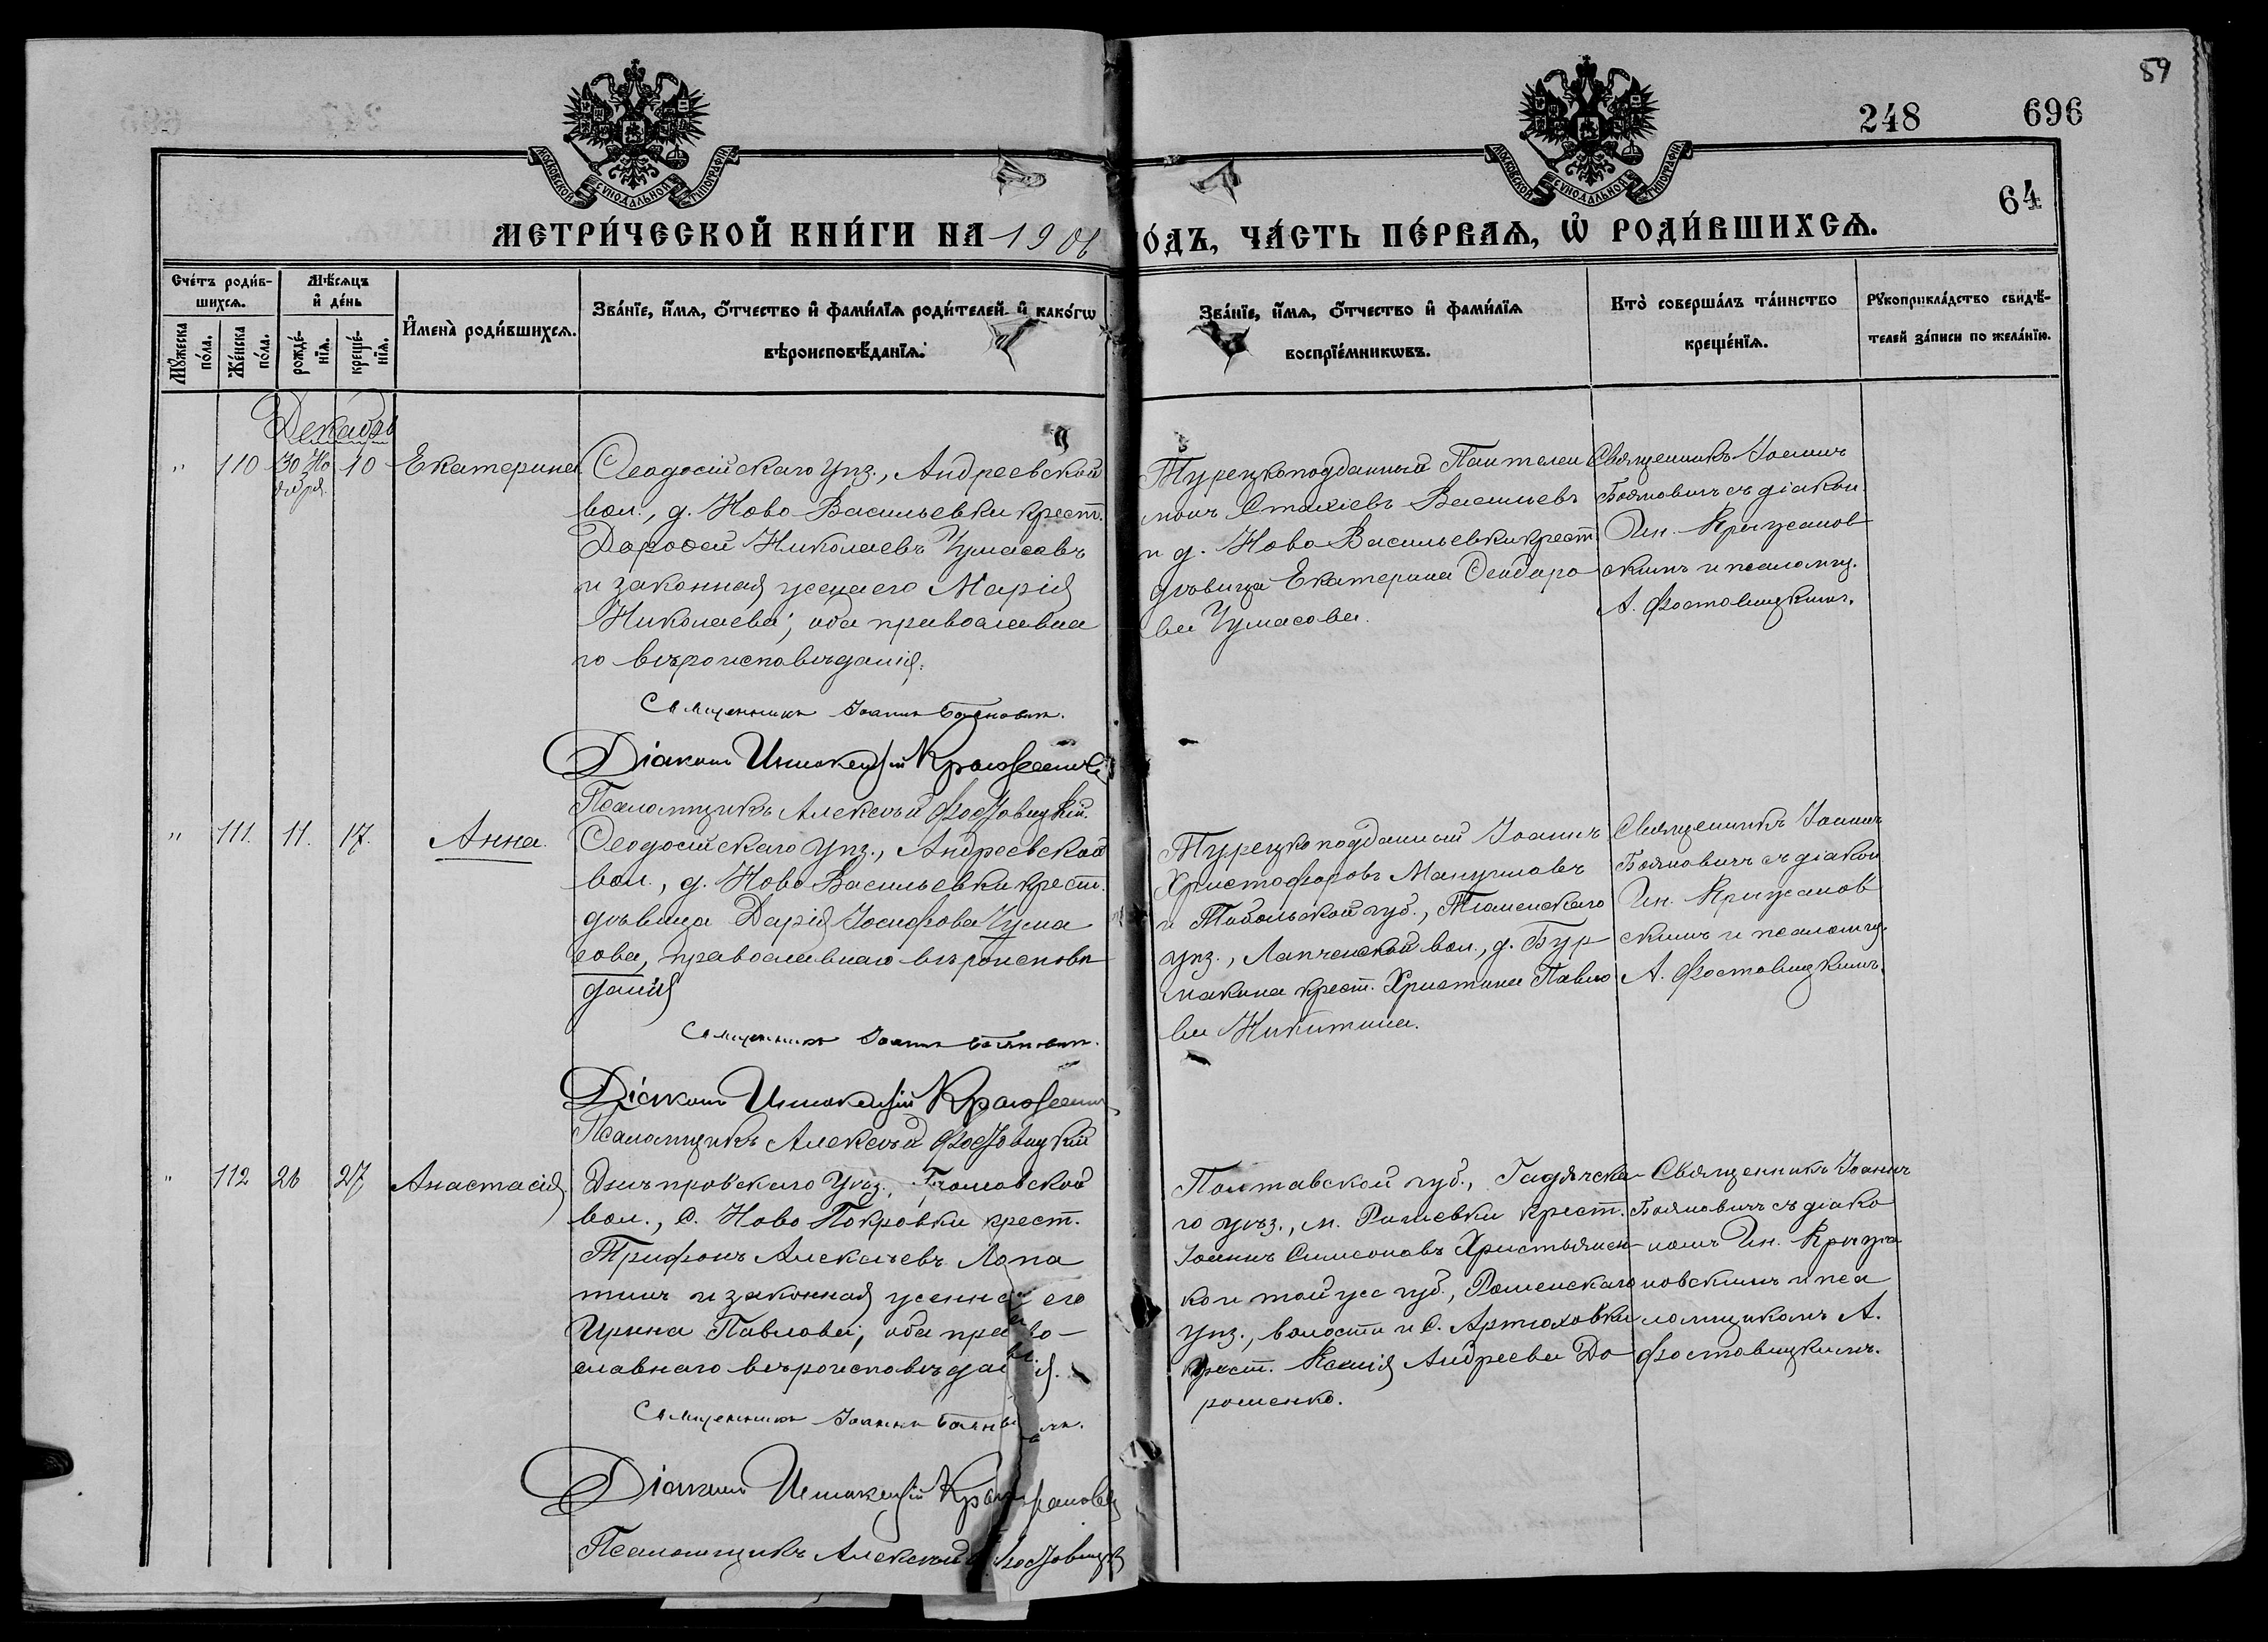 59
248 696
64
МОСКОВСКОЙ СѴНОДАЛЬНОЙ ТИПОГРАФІИ
МОСКОВСКОЙ СѴНОДАЛЬНОЙ ТИПОГРАФІИ
МЕТРИ́ЧЕСКОЙ КНИ́ГИ НА 1906
О́ДЪ, ЧА́СТЬ ПЕ́РВАѦ, Ѡ҆ РОДИ́ВШИХСѦ.
Сче́тъ роди́в-
шихсѧ.
Мꙋ́жеска по́ла.
Же́нска по́ла.
Мѣ́сѧцъ
и҆ де́нь
рожде́-
нїѧ.
креще́-
нїѧ.
И҆мена̀ роди́вшихсѧ.
Зва́нїе, и҆́мѧ, ѻ҆́тчество и҆ фами́лїѧ роди́телей и҆ како́гѡ
вѣроисповѣ́данїѧ.
Зва́нїе, и҆́мѧ, ѻ҆́тчество и҆ фами́лїѧ
воспрїе́мникѡвъ.
Кто̀ соверша́лъ та́инство
креще́нїѧ.
Рꙋкоприкла́дство свидѣ́-
телей за́писи по жела́нїю.
Декабрь
" 110 30 Но
ября. 10 Екатерина
Ѳеодосійскаго уѣз., Андреевской
вол., д. Ново Васильевки крест.
Дороѳей Николаевъ Чумасовъ
и законная жена его Марія
Николаева; оба православна
го вѣроисповѣданія.
Священникъ Іоаннъ Бояновичъ.
Діаконъ Иннокентій
Псаломщикъ Алексѣй
Турецкоподданный Пантелеи
монъ Стахіевъ Васильевъ
и д. Ново Васильевки крест.
дѣвица Екатерина Ѳеодоро
ва Чумасова.
Священникъ Іоаннъ
Бояновичъ съ діакон.
Ин. Крыжанов
скимъ и псаломщ.
А. Фостовицкимъ.
" 111. 11. 17. Анна.
Ѳеодосійскаго уѣз., Андреевской
вол., д. Ново Васильевки крест.
дѣвица Дарія Іосифова Чума
сова, православнаго вѣроисповѣ
данія
Священникъ Іоаннъ Бояновичъ.
Діаконъ Иннокентій
Псаломщикъ Алексѣй
Турецкоподданный Іоаннъ
Христофоровъ Мануиловъ
и Тобольской губ., Тюменскаго
уѣз., вол., д. Бур
макина крест. Христина Павло
ва Никитина.
Священникъ Іоаннъ
Бояновичъ съ діакон
Ин. Крыжанов
скимъ и псаломщ.
А. Фостовицкимъ.
" 112 26 27 Анастасія
Днѣпровскаго уѣз., Громовской
вол., с. Ново Покровки крест.
Трифонъ Алексѣевъ Лопа
тинъ и законная жена его
Ирина Павлова; оба право-
славнаго вѣроисповѣданія.
Священникъ Іоаннъ Бояновичъ.
Діаконъ Иннокентій
Псаломщикъ Алексѣй
Полтавской губ., Гадячска-
го уѣз., м. Рашевки крест.
Іоаннъ Симеоновъ Христьянен-
ко и той же губ., Роменскаго
уѣз., волости и с. Артюховки
крест. Ксенія Андреева До
рошенко.
Священникъ Іоаннъ
Бояновичъ съ діако
номъ Ин. Крыжа
новскимъ и пса
ломщикомъ А.
Фостовицкимъ.